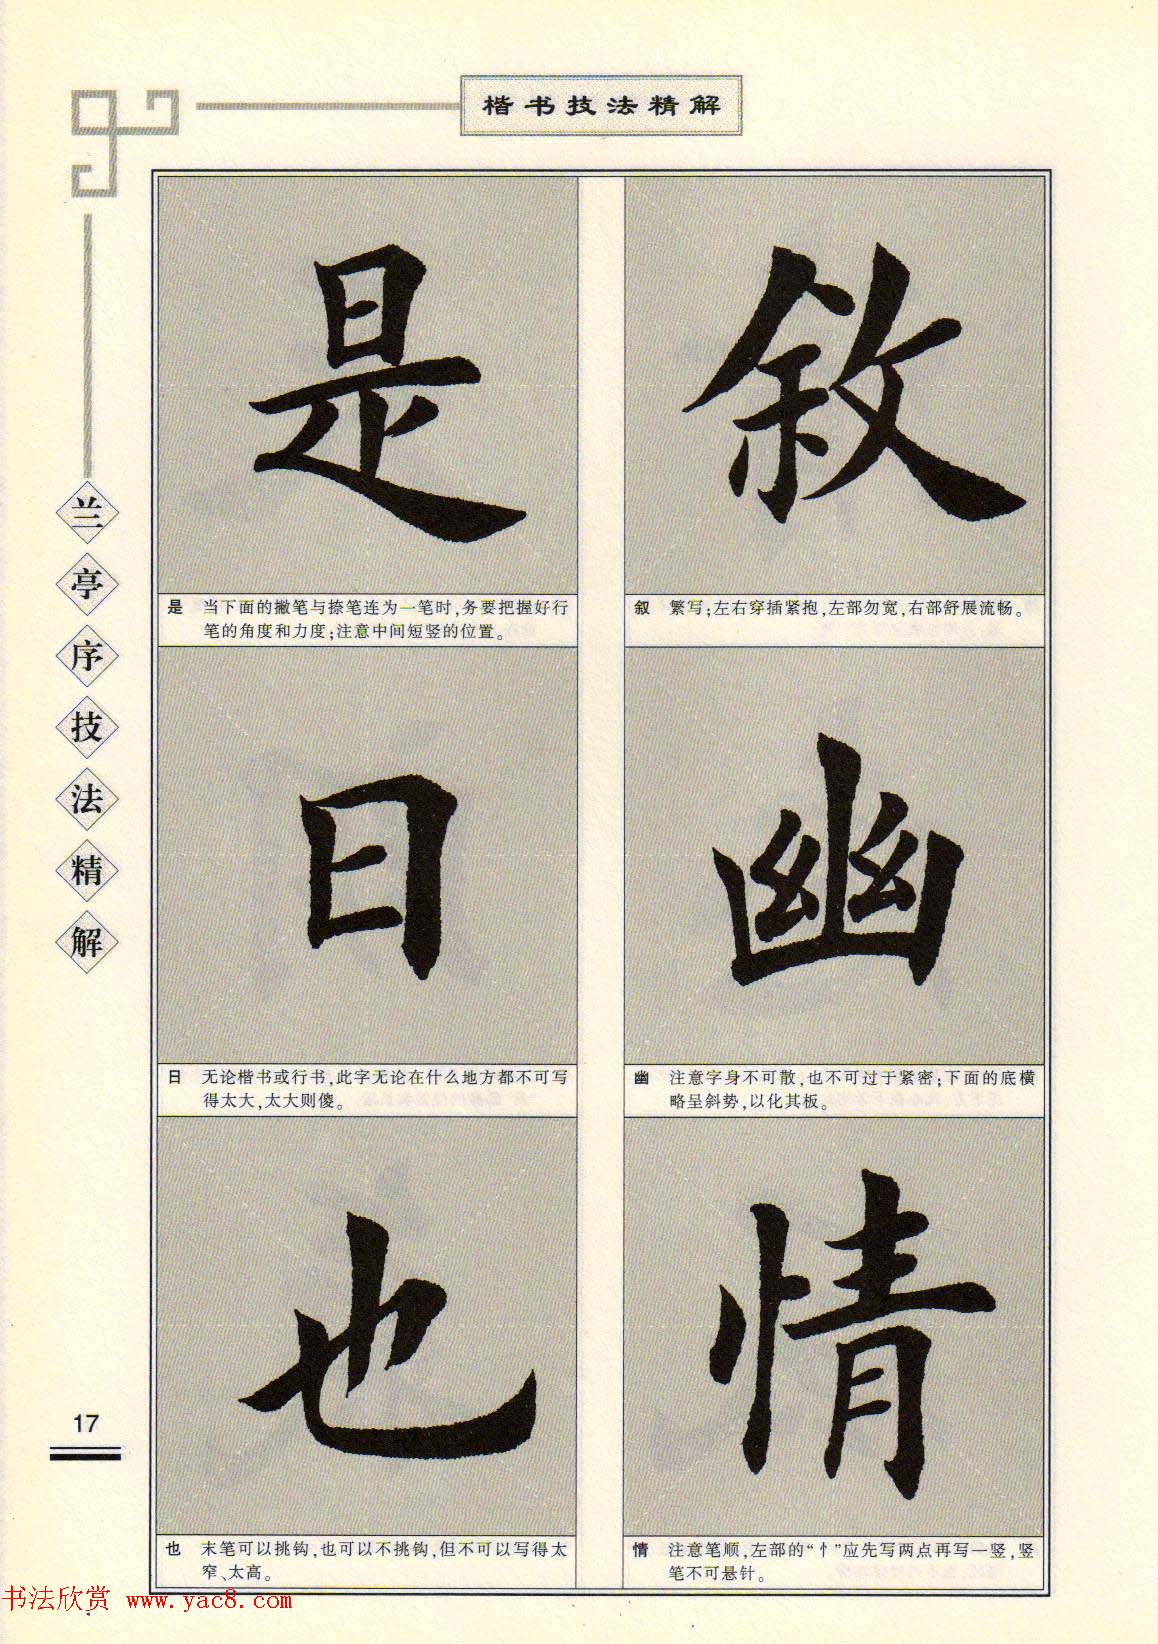 楷书技法精解
兰亭序技法精解
叙
叙 繁写;左右穿插紧抱,左部勿宽,右部舒展流畅。
幽
幽 注意字身不可散,也不可过于紧密;下面的底横
略呈斜势,以化其板。
情
情 注意笔顺,左部的“忄”应先写两点再写一竖,竖
笔不可悬针。
是
是 当下面的撇笔与捺笔连为一笔时,务要把握好行
笔的角度和力度;注意中间短竖的位置。
日
日 无论楷书或行书,此字无论在什么地方都不可写
得太大,太大则傻。
也
也 末笔可以挑钩,也可以不挑钩,但不可以写得太
窄、太高。
17
书法欣赏 www.yac8.com